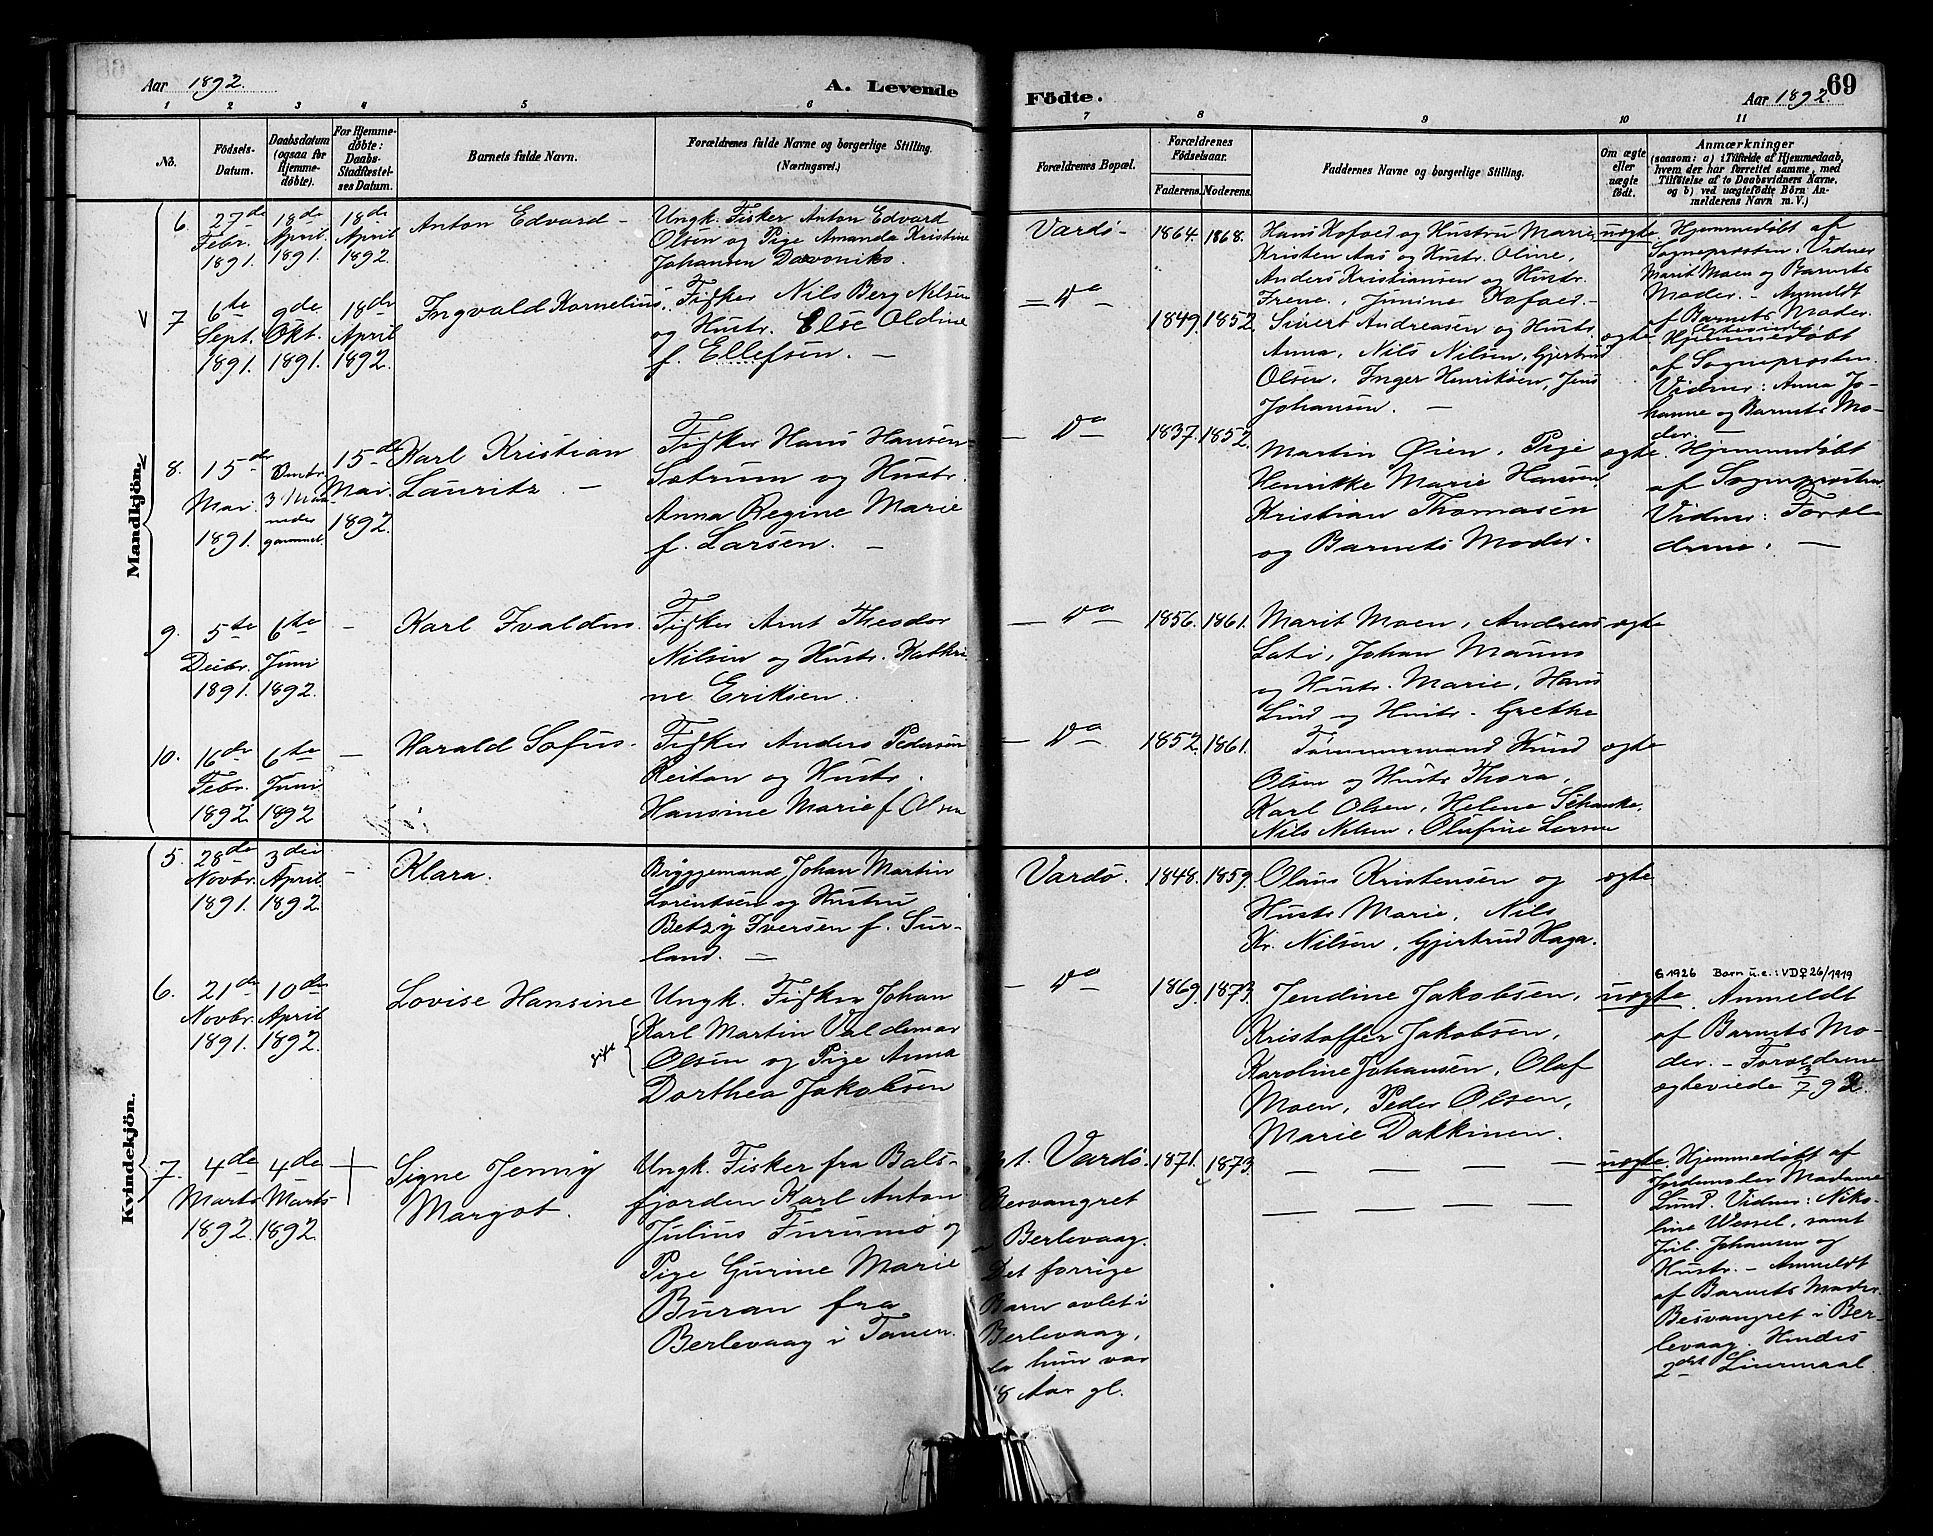 Aar 1892.
A. Levende
Födte.
Aar 1892.
69
1 2 3 4 5 6 7 8 9 10 11
No.
Födsels-
Datum.
Daabsdatum
(ogsaa for
Hjemme-
døbte).
For Hjemme-
døbte:
Daabs-
Stadfæstel-
ses Datum.
Barnets fulde Navn.
Forældrenes fulde Navne og borgerlige Stilling.
(Næringsvei.)
Forældrenes Bopæl.
Forældrenes
Fødselsaar.
Faderens. Moderens.
Faddernes Navne og borgerlige Stilling.
Om ægte
eller
uægte
født.
Anmærkninger
(saasom: a) i Tilfælde af Hjemmedaab,
hvem der har forrettet samme, med
Tilföielse af to Daabsvidners Navne,
og b) ved uægtefödte Börn An-
melderens Navn m. V.)
Mandkjön.
6.
27de
Febr.
1891.
18de
April
1891.
18de
April
1892.
Anton Edvard –
Ungk. Fisker Anton Edvard
Olsen og Pige Amanda Kristine
Johansen Davoniko.
Vardø –
1864. 1868.
Hans Kofoed og Hustru Marie,
Kristen Aas og Hustr. Oline,
Anders Kristiansen og Hustr.
Irene, Jimine Kofoed. –
uægte.
Hjemmedøbt af
Sogneprosten. Vidner
Marit Moen og Barnets
Moder. – Anmeldt
af Barnets Moder.
V 7
6te
Sept.
1891.
9de
Okt.
1891.
18de
April
1892.
Ingvald Kornelius.
Fisker Nils Berg Nilsen
og Hustr. Else Oldine
f. Ellefsen. –
– Do –
1849. 1852.
Sivert Andreasen og Hustr.
Anna, Nils Nilsen, Gjertrud
Olsen, Inger Henriksen, Jens
Johansen. –
ægte
Hjemmedøbt
af Sogneprosten.
Vidner: Anna Jo-
hanne og Barnets Mo-
der. –
8.
15de
Mar.
1891.
3 Maa-
neder
gammel.
15de
Mar.
1892.
Karl Kristian
Lauritz –
Fisker Hans Hansen
Sætrum og Hustr.
Anna Regine Marie
f. Larsen. –
– Do –
1837. 1852.
Martin Øien, Pige
Henrikke Marie Hansen,
Kristian Thomasen
og Barnets Moder.
ægte.
Hjemmedøbt
af Sogneprosten
Vidner: Foræl-
drene. –
9.
5te
Decbr.
1891.
6te
Juni
1892.
–
Karl Ivaldus.
Fisker Arnt Theodor
Nilsen og Hustr. Kathri-
ne Eriksen.
– Do –
1856. 1861.
Marit Moen, Andreas
Lati, Johan Mauno
og Hustr. Marie, Hans
Lund og Hustr. Grethe
ægte
10.
16de
Febr.
1892.
6te
Juni
1892
–
Harald Sofus.
Fisker Anders Pedersen
Reitan og Hustr.
Hansine Marie f. Olsen
– Do –
1852. 1861.
Tømmermand Knud
Olsen og Hustr. Thora,
Karl Olsen, Helene Schanke,
Nils Nilsen, Olufine Larsen
ægte
Kvindekjön.
5.
28de
Novbr.
1891.
3die
April
1892.
–
Klara.
Bryggemand Johan Martin
Lorentsen og Hustru
Betzy Iversen f. Sur-
land. –
Vardø.
1848. 1859.
Olaus Kristensen og
Hustr. Marie, Nils
Kr. Nilsen, Gjertrud Haga.
ægte
6.
21de
Novbr.
1891.
10de
April
1892.
Lovise Hansine
gift
Ungk. Fisker Johan
Karl Martin Valdemar
Olsen og Pige Anna
Dorthea Jakobsen
– Do –
1869. 1873.
Jendine Jakobsen,
Kristoffer Jakobsen,
Karoline Johansen, Olaf
Moen, Peder Olsen,
Marie Dakkinen.
uægte.
G 1926 Barn u.e.: VD♀26/1919
Anmeldt
af Barnets Mo-
der. – Forældrene
ægteviede 3/7 92.
7.
4de
Marts
1892.
4de
Marts
1892.
+
Signe Jenny
Margot.
Ungk. Fisker fra Bals-
fjorden Karl Anton
Julius Furumo og
Pige Gurine Marie
Buran fra
Berlevaag i Tanen.
Vardø.
Besvangret
Berlevaag.
Det forrige
Barn avlet i
Berlevaag,
hun var
18 Aar gl.
1871. 1873.
– – – –
– – – –
uægte.
Hjemmedøbt af
Jordemoder Madame
Lund. Vidner: Niko-
line Wessel, samt
Jul. Johansen og
Hustr. – Anmeldt
af Barnets Moder
Besvangret i Ber-
levaag. Hendes
2det Leiermaal